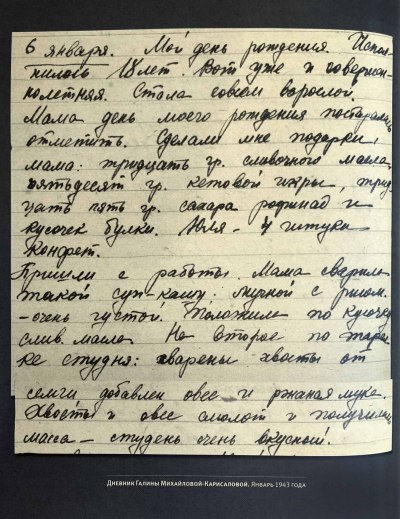 6 января. Мой день рождения. Испол-
нилось 18 лет. Вот уже и совершен-
нолетняя. Стала совсем взрослой.
Мама день моего рождения постаралась
отметить. Сделали мне подарки,
мама: тридцать гр. сливочного масла,
пятьдесят гр. кетовой икры, трид-
цать пять гр. сахара рафинад и
кусочек булки. Юля - 4 штуки
конфет.
Пришли с работы. Мама сварила
такой суп-кашу: мучной с рисом.
- очень густой. Положили по кусочку
слив. масла. На второе по тарел-
ке студня: сварены хвосты от
семги добавлен овес и ржаная мука.
Хвосты и овес смолот и получилась
масса - студень очень вкусный.
Дневник Галины Михайловой-Карисаловой. Январь 1943 года